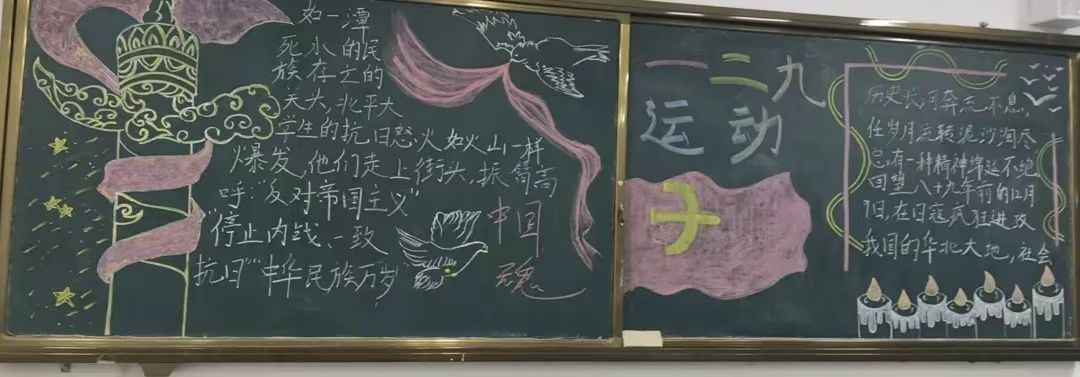 如一潭
死水的民
族存亡的
关头,北平大
学生的抗日怒火如火山一样
爆发,他们走上街头,振臂高
呼:"反对帝国主义"
"停止内战、一致
抗日""中华民族万岁"
中国
魂
一二九
运动
历史长河奔流不息,
任岁月流转泥沙淘尽
总有一种精神绵延不绝
回望八十九年前的12月
9日,在日寇疯狂进攻
我国的华北大地,社会